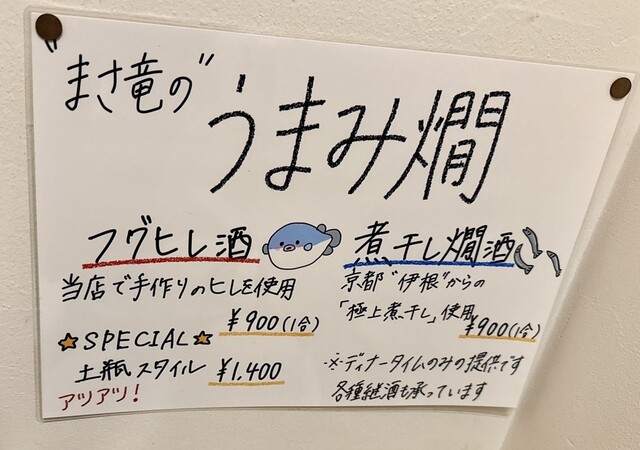 "まさ竜の"
うまみ燗
フグヒレ酒
当店で手作りのヒレを使用
¥900(1合)
☆SPECIAL☆
土瓶スタイル ¥1,400
アツアツ!
煮干し燗酒
京都"伊根"からの
「極上煮干し」使用
¥900(1合)
※ディナータイムのみの提供です
各種継酒も承っています